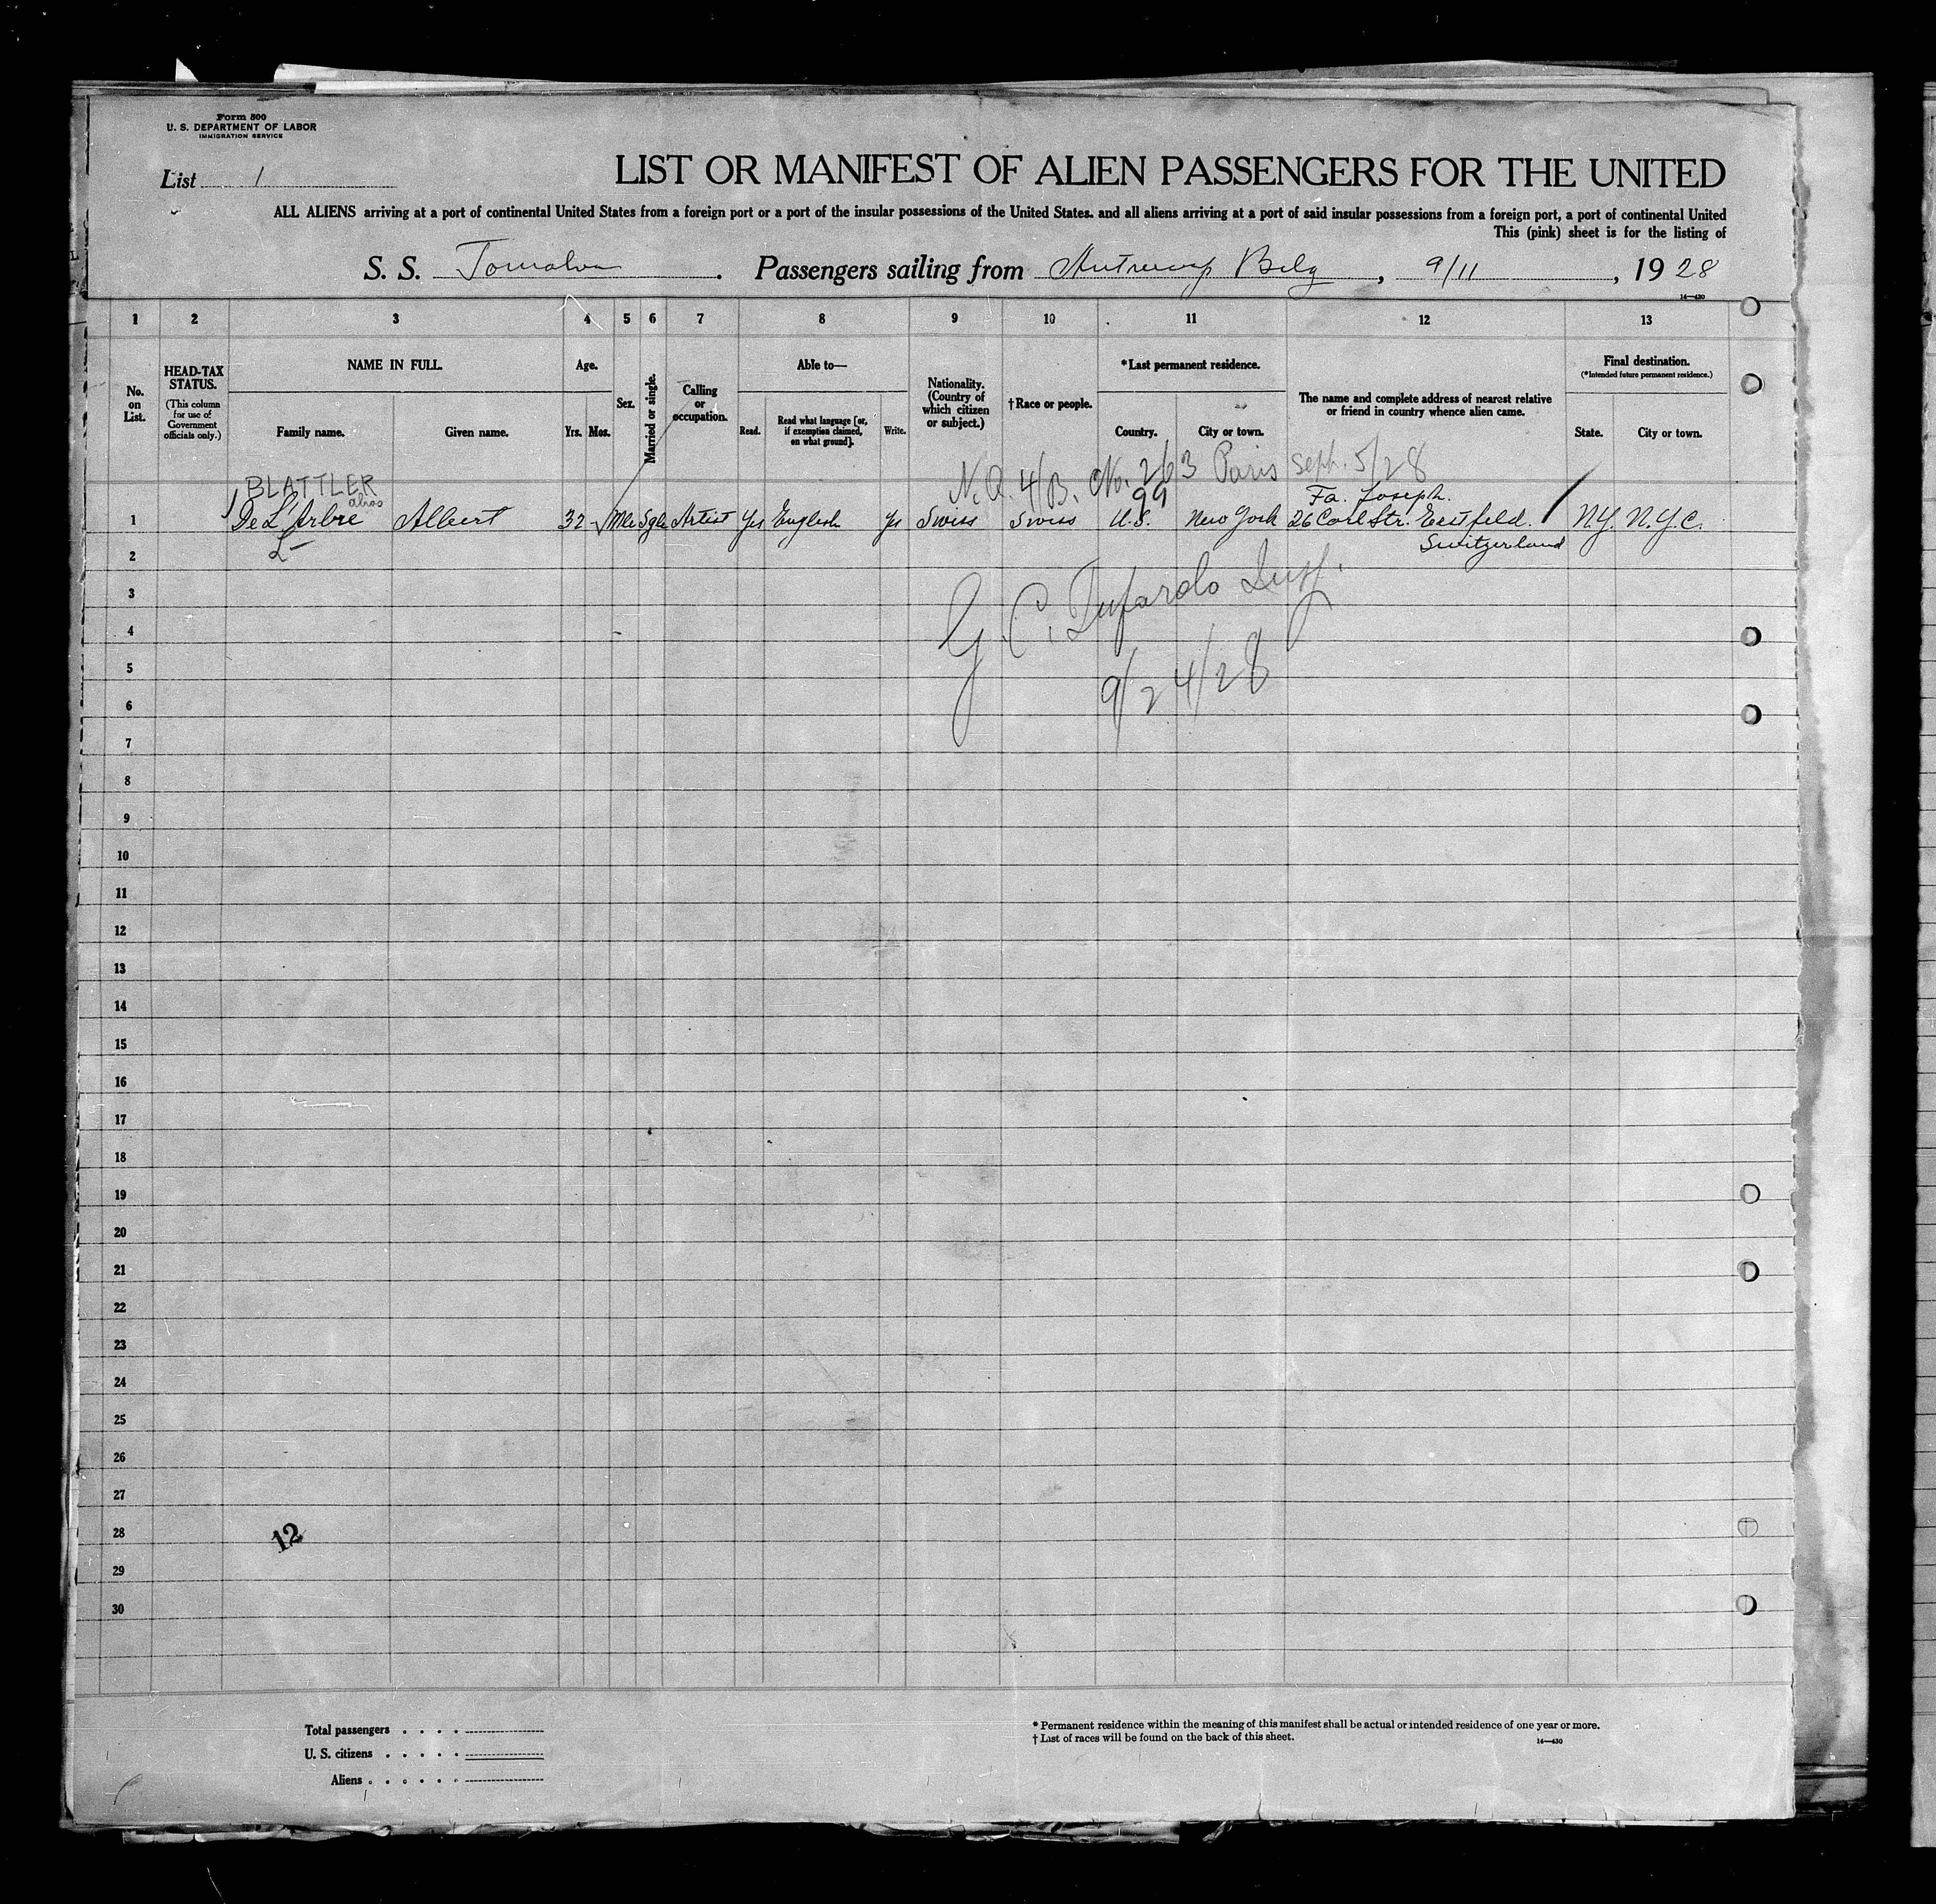 Form 500
U. S. DEPARTMENT OF LABOR
IMMIGRATION SERVICE
List 1
LIST OR MANIFEST OF ALIEN PASSENGERS FOR THE UNITED
ALL ALIENS arriving at a port of continental United States from a foreign port or a port of the insular possessions of the United States. and all aliens arriving at a port of said insular possessions from a foreign port, a port of continental United
This (pink) sheet is for the listing of
S. S. Tomalva. Passengers sailing from Antwerp Belg, 9/11, 1928
14—430
1 2 3 4 5 6 7 8 9 10 11 12 13
No. on List.
HEAD-TAX STATUS.
(This column for use of Government officials only.)
NAME IN FULL.
Family name. Given name.
Age.
Yrs. Mos.
Sex.
Married or single.
Calling or occupation.
Able to—
Read. Read what language [or, if exemption claimed, on what ground]. Write.
Nationality. (Country of which citizen or subject.)
†Race or people.
*Last permanent residence.
Country. City or town.
The name and complete address of nearest relative or friend in country whence alien came.
Final destination.
(*Intended future permanent residence.)
State. City or town.
N.Q. 4/B. No. 263 Paris Sept. 5/28
BLATTLER
alias
99
Fa. Joseph.
1 De L'Arbre Albert 32 Mle Sgle Artist Yes English Yes Swiss Swiss U.S. New York 26 Carl Str. N.Y. N.Y.C.
Switzerland
2
3
4
G. C.
5
9/24/28
6
7
8
9
10
11
12
13
14
15
16
17
18
19
20
21
22
23
24
25
26
27
28
12
29
30
Total passengers
U. S. citizens
Aliens
* Permanent residence within the meaning of this manifest shall be actual or intended residence of one year or more.
† List of races will be found on the back of this sheet.
14—430